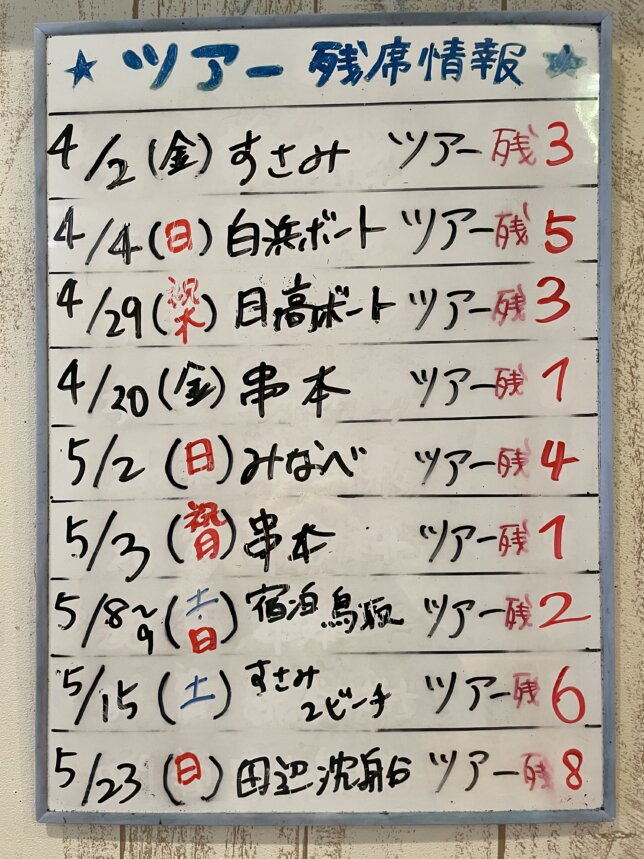 ★ ツアー 残席情報 ★
4/2(金) すさみ ツアー 残 3
4/4(日) 白浜ボート ツアー 残 5
4/29(祝木) 日高ボート ツアー 残 3
4/20(金) 串本 ツアー 残 1
5/2(日) みなべ ツアー 残 4
5/3(祝月) 串本 ツアー 残 1
5/8~9(土・日) 宿泊鳥取 ツアー 残 2
5/15(土) すさみ2ビーチ ツアー 残 6
5/23(日) 田辺沈船 ツアー 残 8